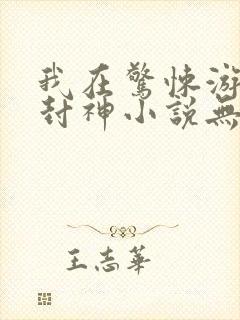 我在驚悚游
封神小説無
王志華